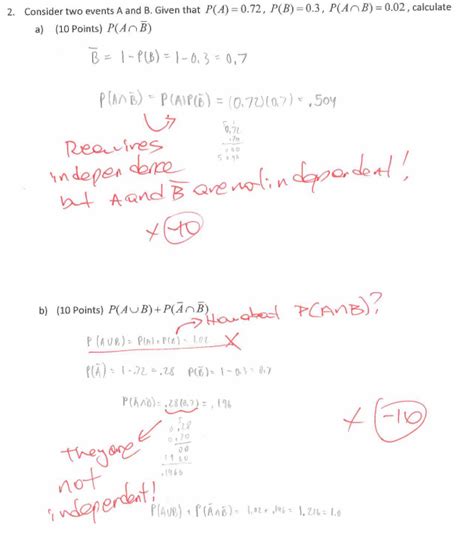 2. Consider two events A and B. Given that P(A) = 0.72, P(B) = 0.3, P(A∩B) = 0.02, calculate
a) (10 Points) P(A∩B̅)
B̅ = 1 - P(B) = 1 - 0.3 = 0.7
P(A∩B̅) = P(A)P(B̅) = (0.72)(0.7) = .504
0.72
Requires
independence
but A and B̅ are not independent!
x -10
b) (10 Points) P(A∪B)+P(A̅∩B̅)
How about P(A∩B)?
P(A∪B) = P(A)+P(B) = 1.02 X
P(A̅) = 1-.72 = .28 P(B̅) = 1-0.3 = 0.7
= .28(0.7) = .196
x -10
0.28
.1960
they are
not
independent!
P(A∪B) + P(A̅∩B̅) = 1.02 + .196 = 1.216 = 1.0